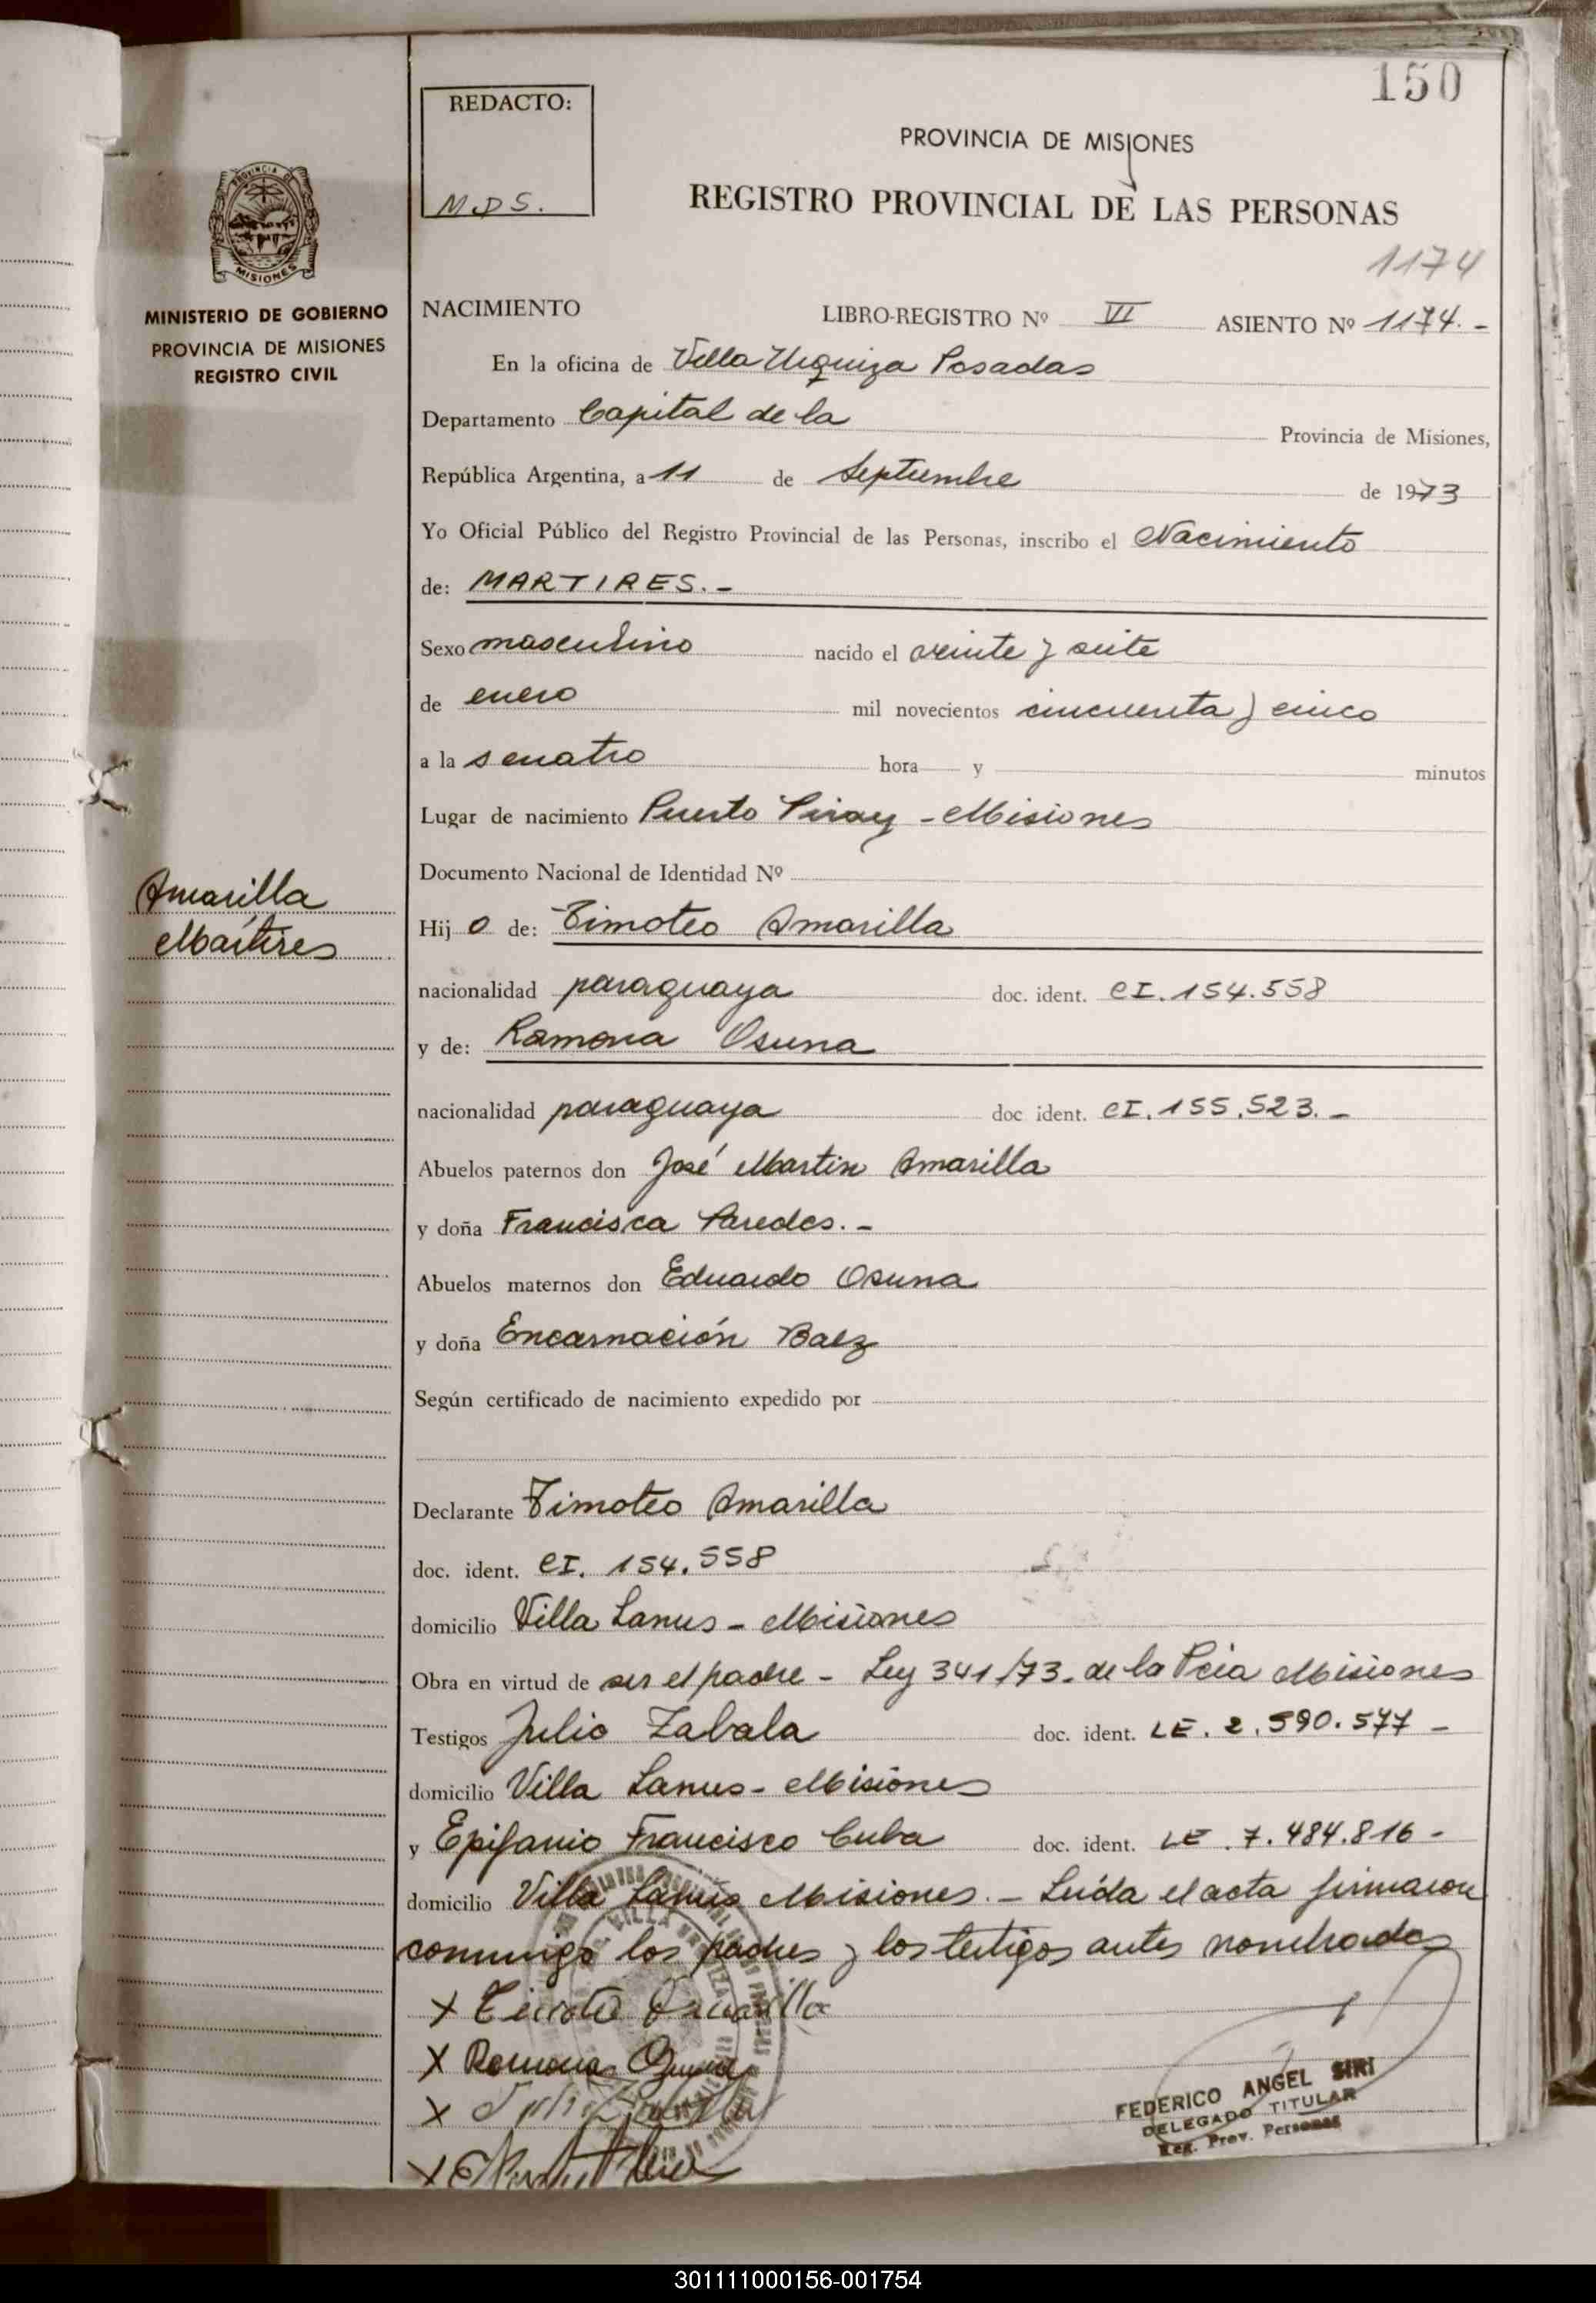 150
REDACTO:
M.D.S.
PROVINCIA DE MISIONES
REGISTRO PROVINCIAL DE LAS PERSONAS
1174
PROVINCIA DE
MISIONES
MINISTERIO DE GOBIERNO
PROVINCIA DE MISIONES
REGISTRO CIVIL
Amarilla
Mártires
NACIMIENTO LIBRO-REGISTRO Nº VI ASIENTO Nº 1174.-
En la oficina de Villa Urquiza Posadas
Departamento Capital de la Provincia de Misiones,
República Argentina, a 11 de Septiembre de 1973
Yo Oficial Público del Registro Provincial de las Personas, inscribo el Nacimiento
de: MARTIRES.-
Sexo masculino nacido el veinte y siete
de enero mil novecientos cincuenta y cinco
a la s cuatro hora y minutos
Lugar de nacimiento Puerto Piray - Misiones
Documento Nacional de Identidad Nº
Hij o de: Timoteo Amarilla
nacionalidad paraguaya doc. ident. CI. 154.558
y de: Ramona Osuna
nacionalidad paraguaya doc ident. CI. 155.523.-
Abuelos paternos don José Martin Amarilla
y doña Francisca Paredes.-
Abuelos maternos don Eduardo Osuna
y doña Encarnación Baez
Según certificado de nacimiento expedido por
Declarante Timoteo Amarilla
doc. ident. CI. 154.558
domicilio Villa Lanus - Misiones
Obra en virtud de ser el padre - Ley 341/73. de la Pcia Misiones
Testigos Julio Zabala doc. ident. LE. 2.590.577 -
domicilio Villa Lanus - Misiones
y Epifanio Francisco Cuba doc. ident. LE. 7.484.816 -
domicilio Villa Lanus Misiones.- Leída el acta firmaron
conmigo los padres y los testigos antes nombrados
X Timoteo Amarilla
X Ramona Osuna
X
X
FEDERICO ANGEL SIRI
DELEGADO TITULAR
Reg. Prov. Personas
301111000156-001754